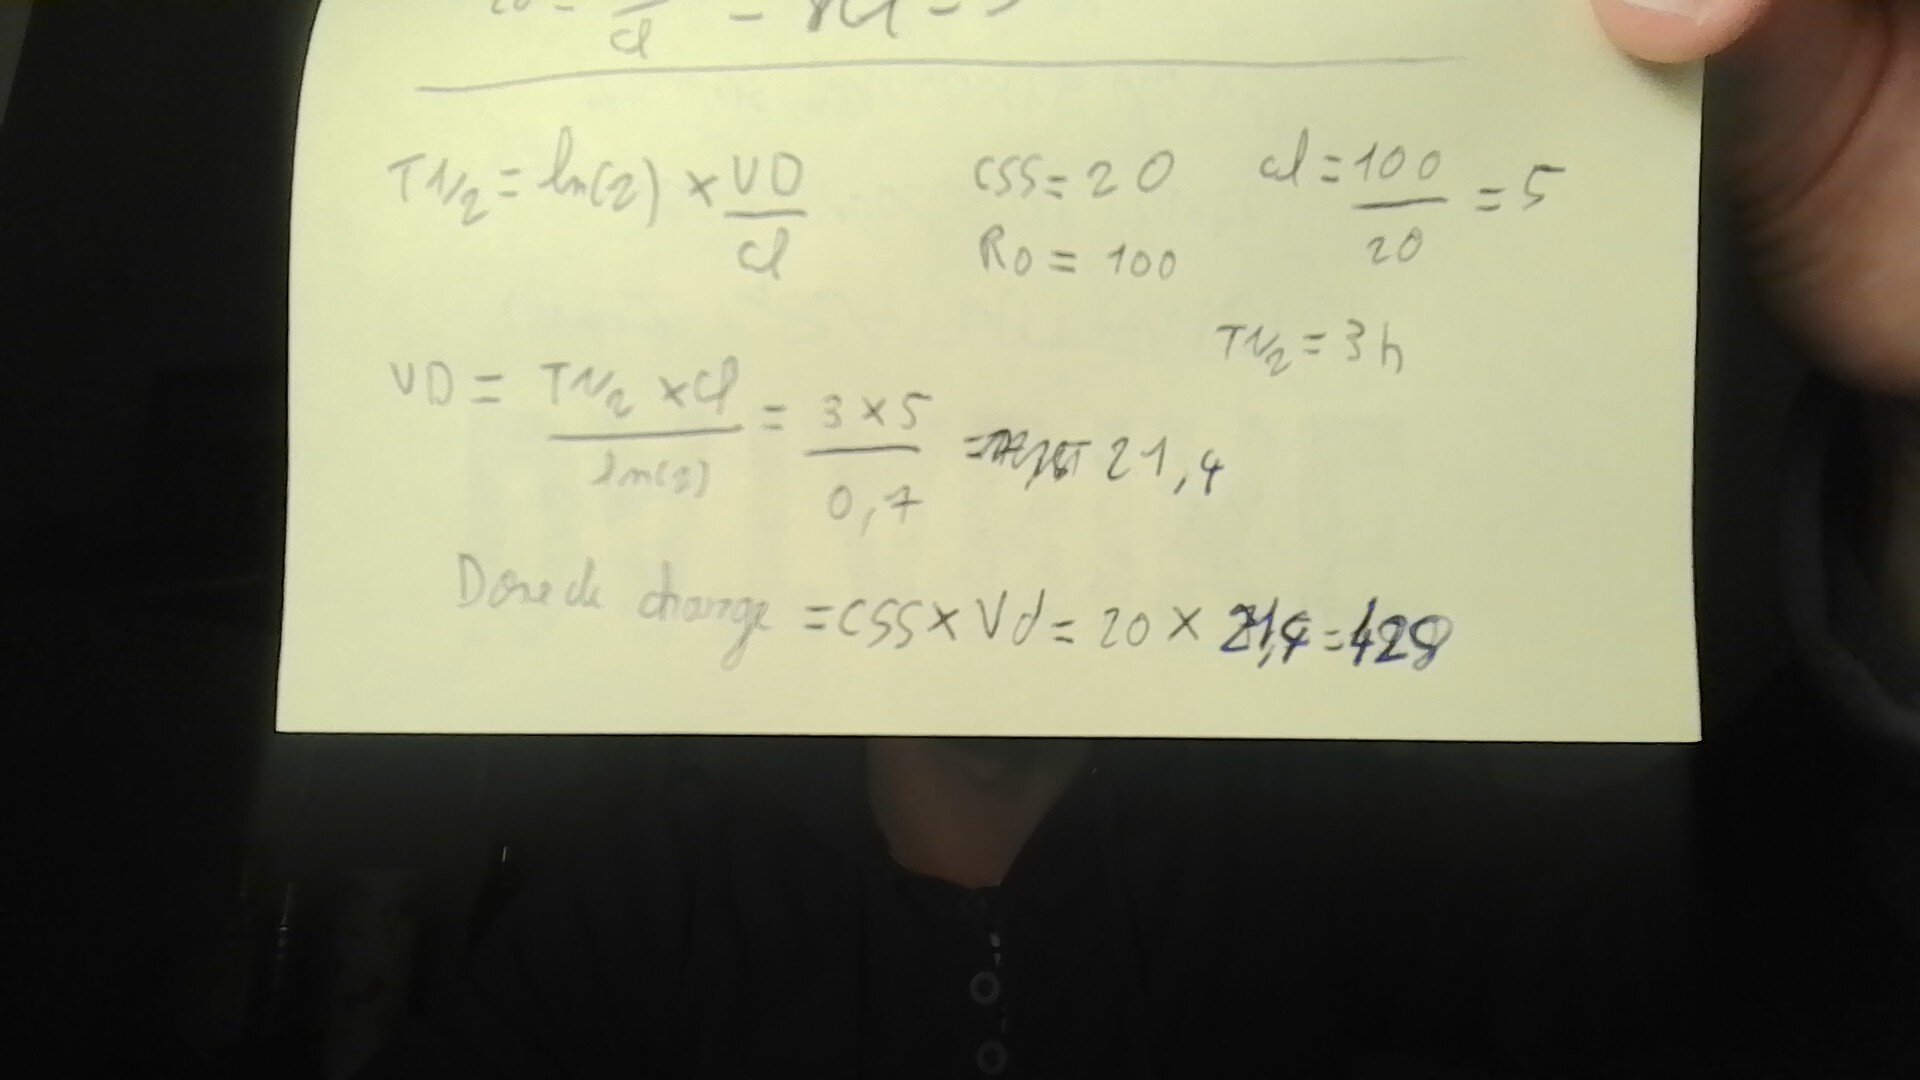 cl
T1/2 = ln(2) × VD/cl
CSS = 20
R0 = 100
cl = 100/20 = 5
T1/2 = 3h
VD = T1/2 × Cl / ln(2) = 3 × 5 / 0,7 = 21,4
Dose de charge = CSS × Vd = 20 × 21,4 = 428